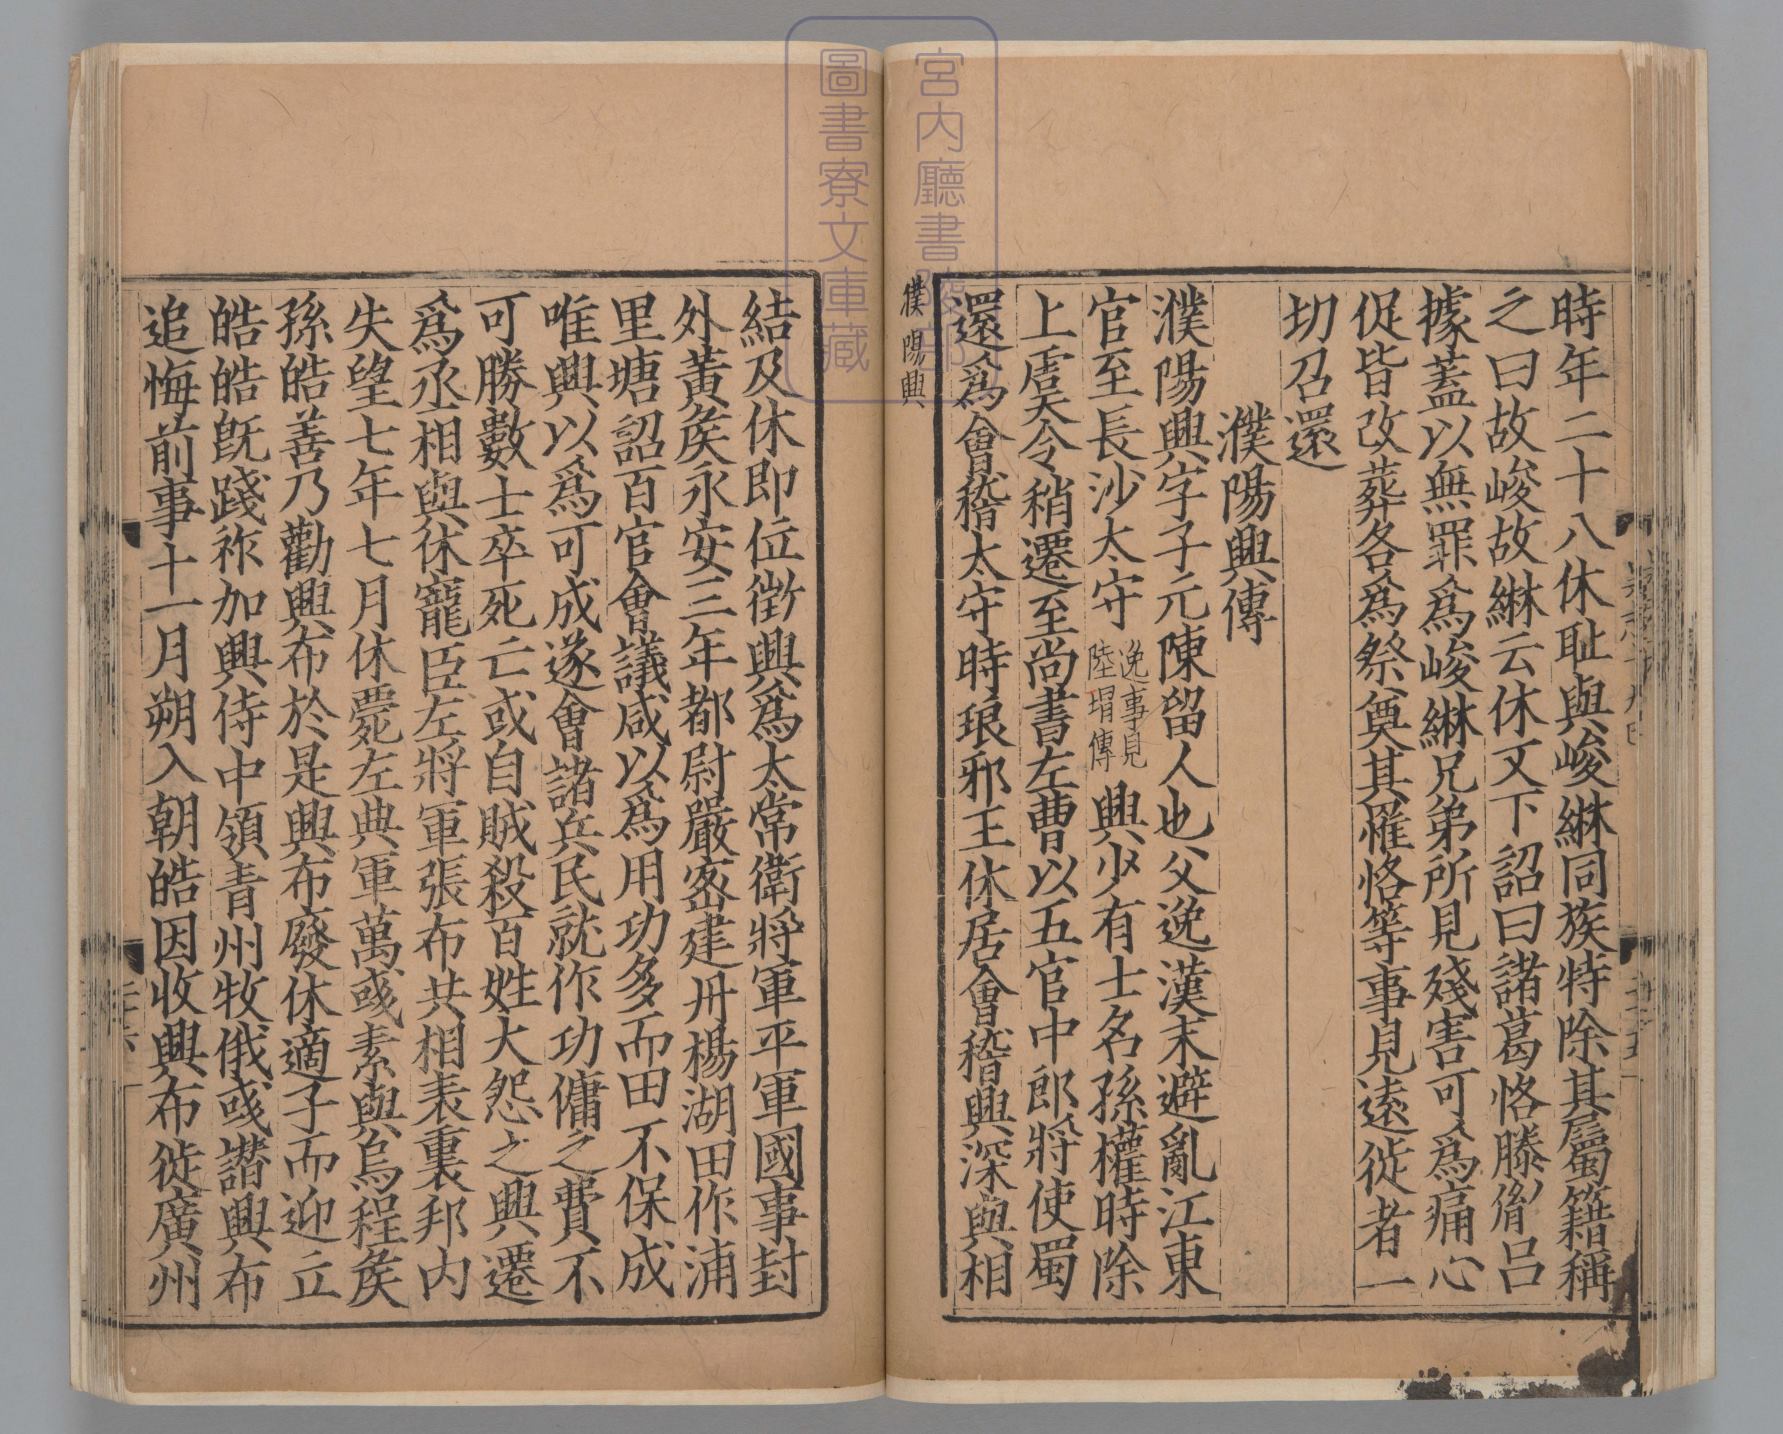 時年二十八休耻與峻綝同族特除其屬籍稱
之曰故峻故綝云休又下詔曰諸葛恪滕胤呂
據蓋以無罪爲峻綝兄弟所見殘害可爲痛心
促皆改葬各爲祭奠其罹恪等事見遠徙者一
切召還
濮陽興傳
濮陽興字子元陳留人也父逸漢末避亂江東
官至長沙太守逸事見陸瑁傳興少有士名孫權時除
上虞令稍遷至尚書左曹以五官中郎將使蜀
還爲會稽太守時琅邪王休居會稽興深與相
濮陽興
結及休即位徵興爲太常衛將軍平軍國事封
外黃矦永安三年都尉嚴密建丹楊湖田作浦
里塘詔百官會議咸以爲用功多而田不保成
唯興以爲可成遂會諸兵民就作功傭之費不
可勝數士卒死亡或自賊殺百姓大怨之興遷
爲丞相與休寵臣左將軍張布共相表裏邦内
失望七年七月休薨左典軍萬彧素與烏程矦
孫皓善乃勸興布於是興布廢休適子而迎立
皓皓旣踐祚加興侍中領青州牧俄彧譖興布
追悔前事十一月朔入朝皓因收興布徙廣州
宮内廳書陵部
圖書寮文庫藏